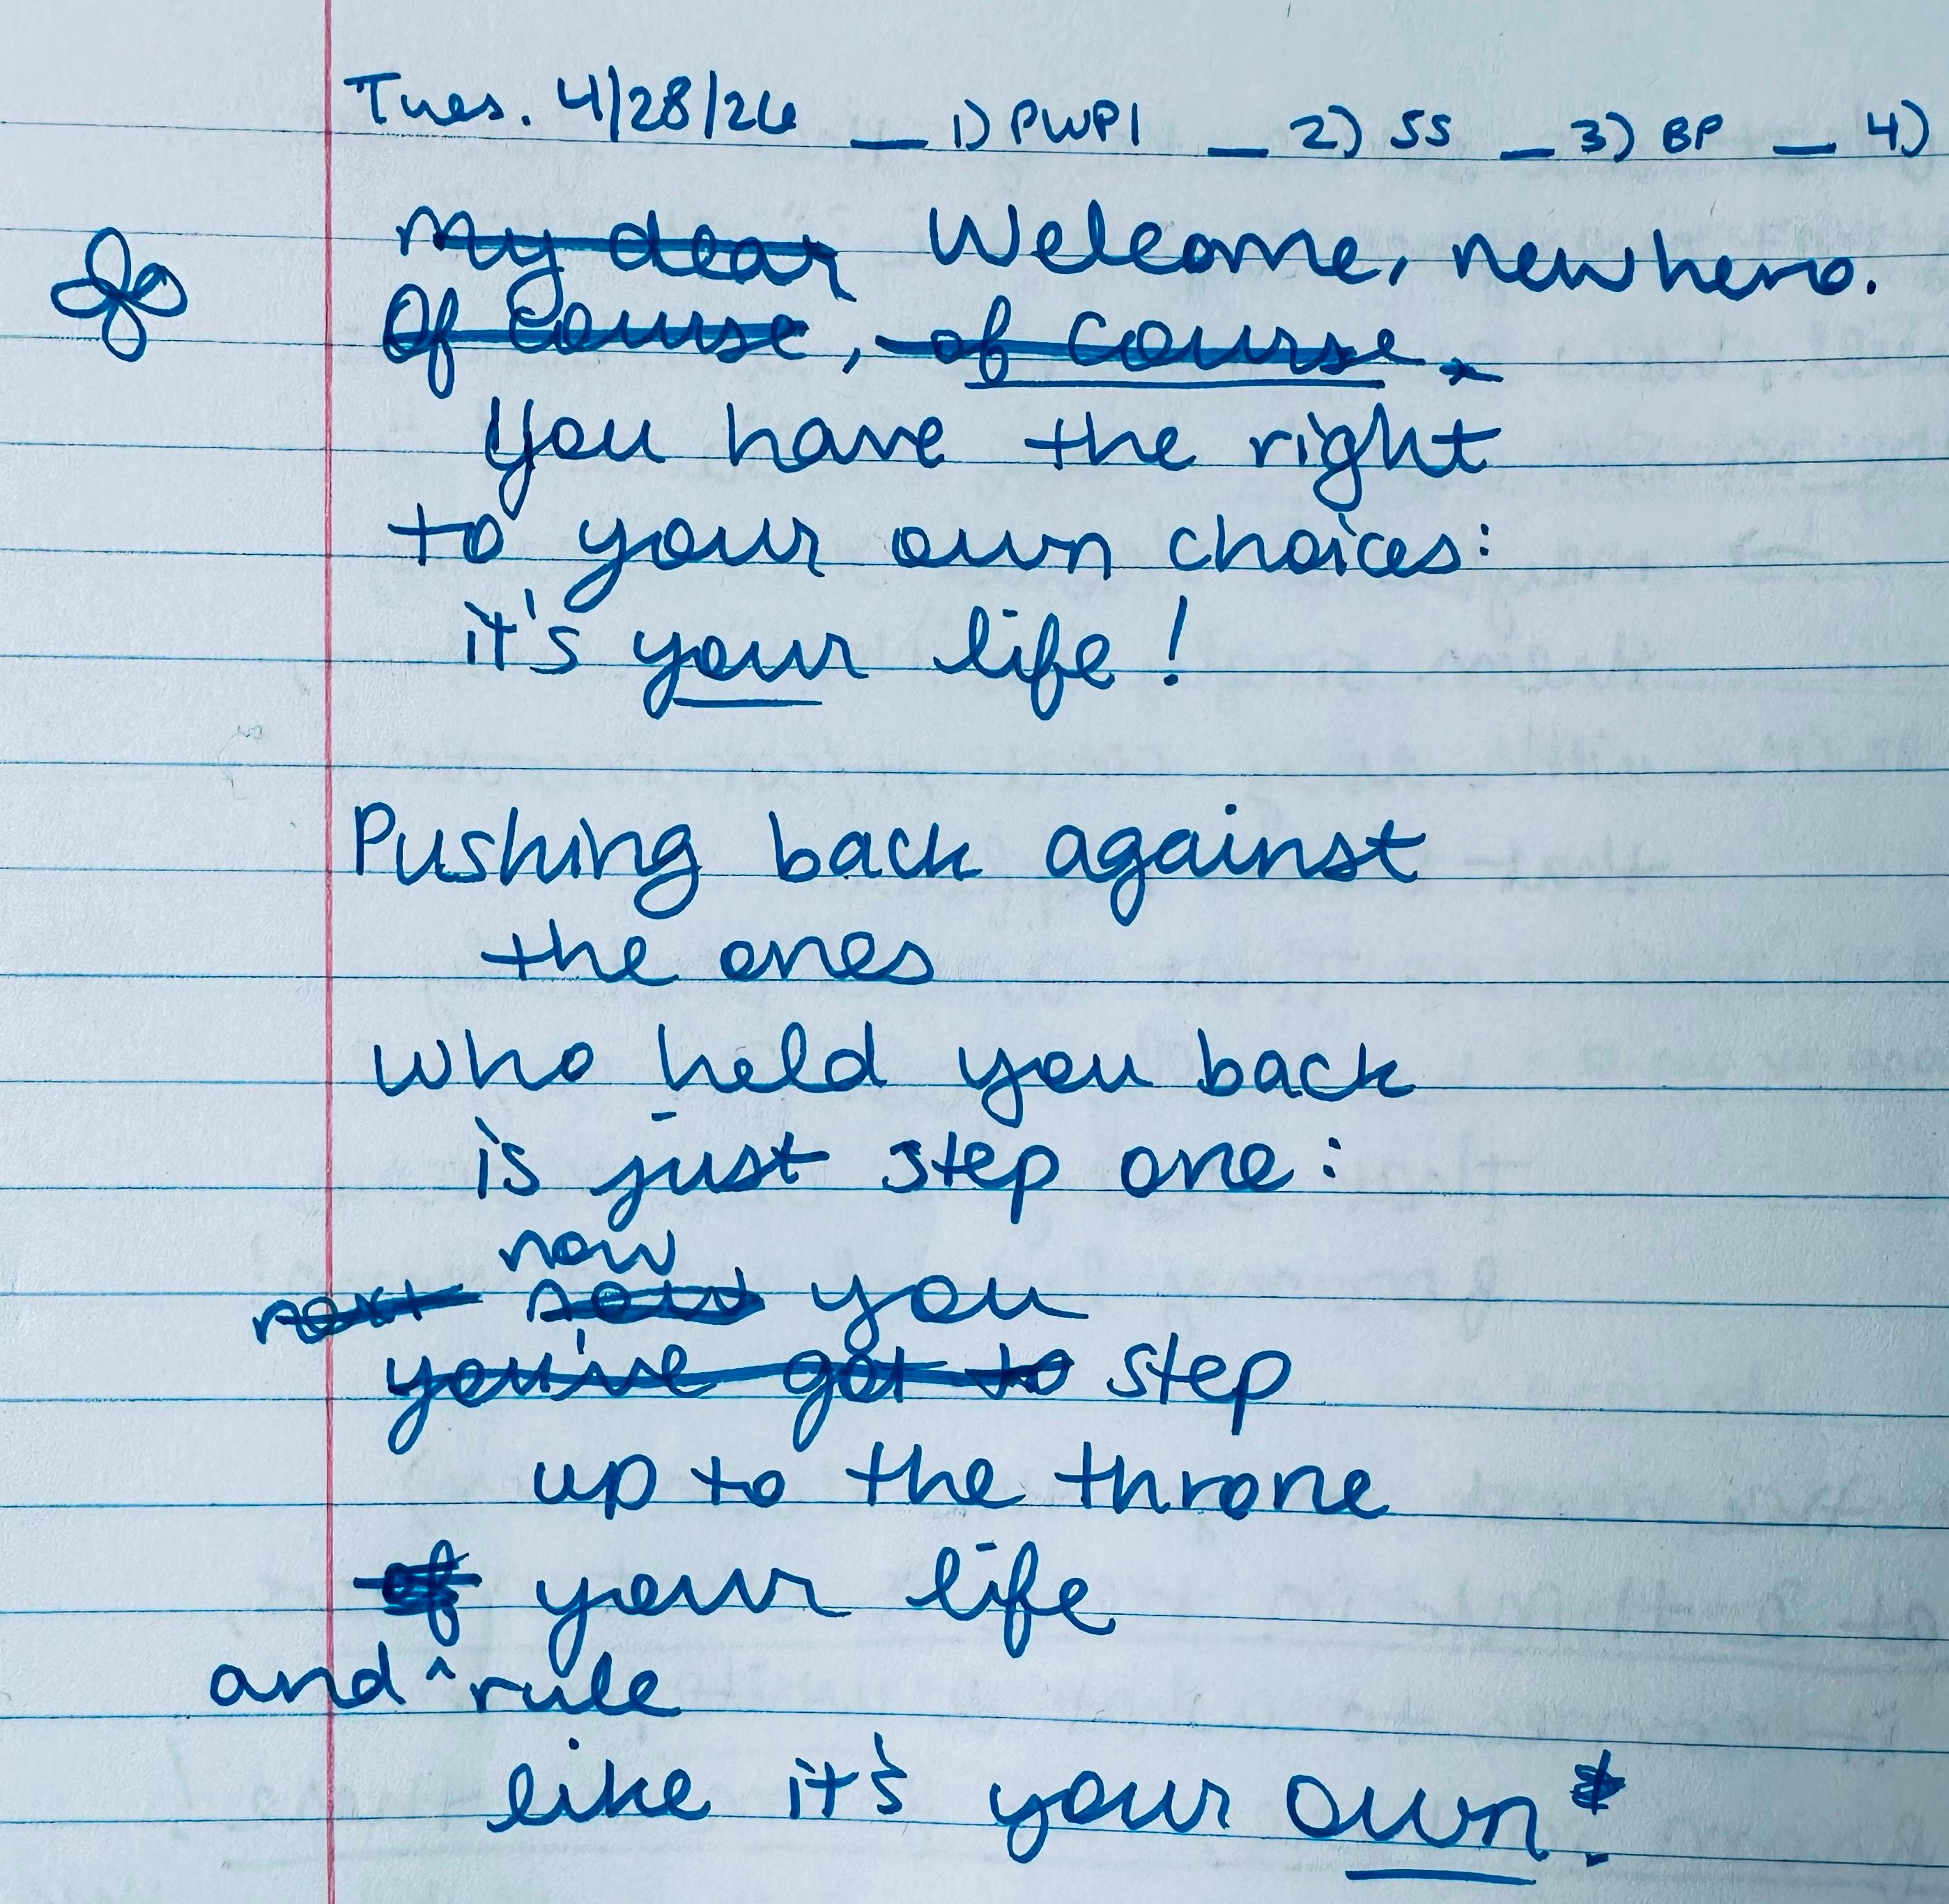 Tues. 4/28/26 _ 1) PWP1 _ 2) SS _ 3) BP _ 4)
my dear Welcome, new hero.
Of course, of course.
You have the right
to your own choices:
it's your life!
Pushing back against
the ones
who held you back
is just step one:
now
next now you
you've got to step
up to the throne
of your life
and ^ rule
like it's your own.